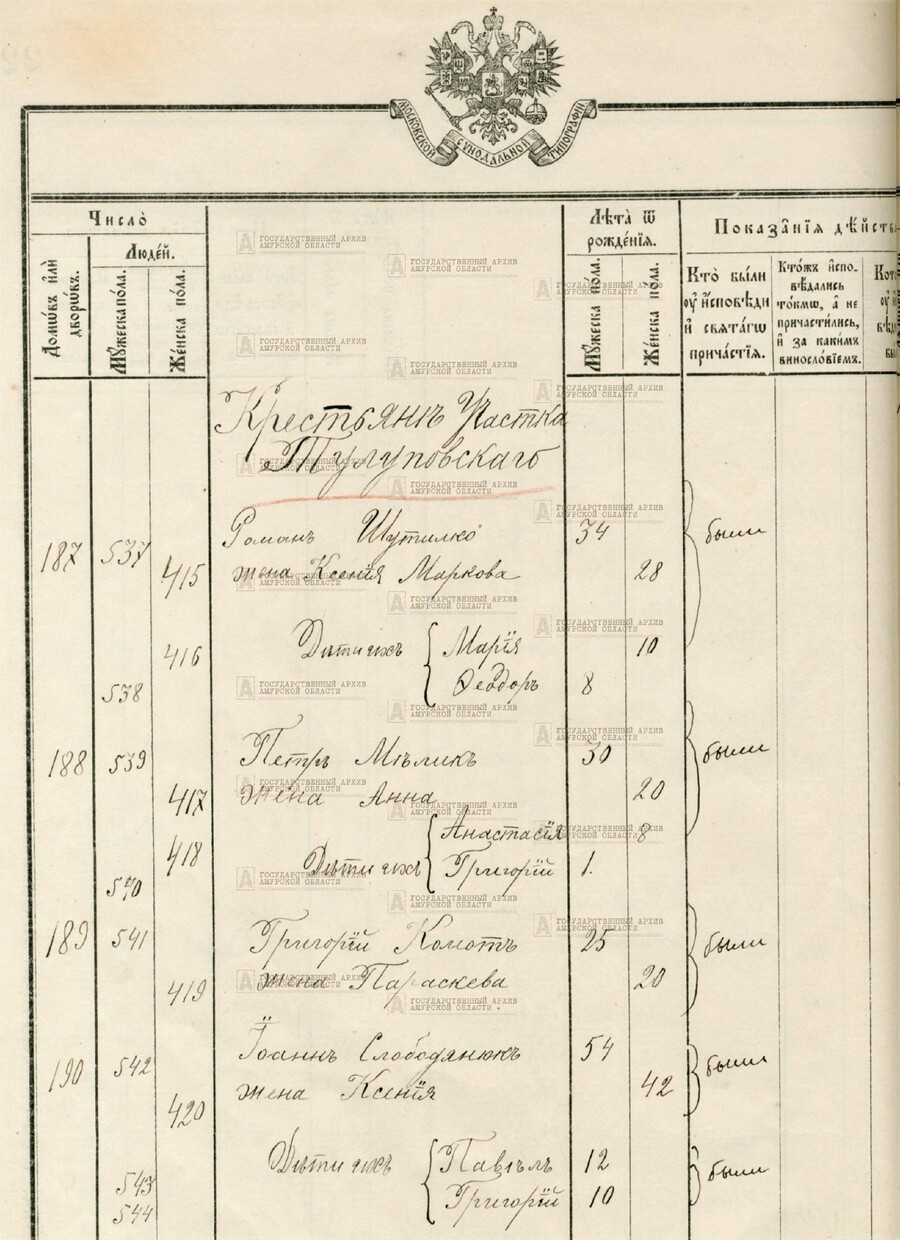 МОСКОВСКОЙ СѴНОДАЛЬНОЙ ТИПОГРАФІИ
Число̀
Домѡ́въ и҆лѝ дворѡ́въ.
Люде́й.
Мꙋ́жеска по́ла.
Же́нска по́ла.
Лѣ́та ѿ рожде́нїѧ.
Мꙋ́жеска по́ла.
Же́нска по́ла.
Показа̑нїѧ дѣ́йств
Кто̀ бы́ли
оу҆ и҆́сповѣди
и҆ свѧта́гѡ
прича́стїѧ.
Кто́жъ и҆спо-
вѣ́дались
то́кмѡ, а҆ не
причасти́лись,
и҆ за каки́мъ
виносло́вїемъ.
Кот
оу҆ и҆
вѣ
бы
Крестьянъ Участка
Тулуповскаго
187 537 Романъ Шутилко 34 были
415 жена Ксенія Маркова 28
416 Дѣти ихъ Марія 10
538 Ѳеодоръ 8
188 539 Петръ Мѣликъ 30 были
417 жена Анна 20
418 Дѣти ихъ Анастасія 8
540 Григорій 1.
189 541 Григорій Комотъ 25 были
419 жена Параскева 20
190 542 Іоаннъ Слободянюкъ 54 были
420 жена Ксенія 42
543 Дѣти ихъ Павелъ 12 были
544 Григорій 10
ГОСУДАРСТВЕННЫЙ АРХИВ
АМУРСКОЙ ОБЛАСТИ